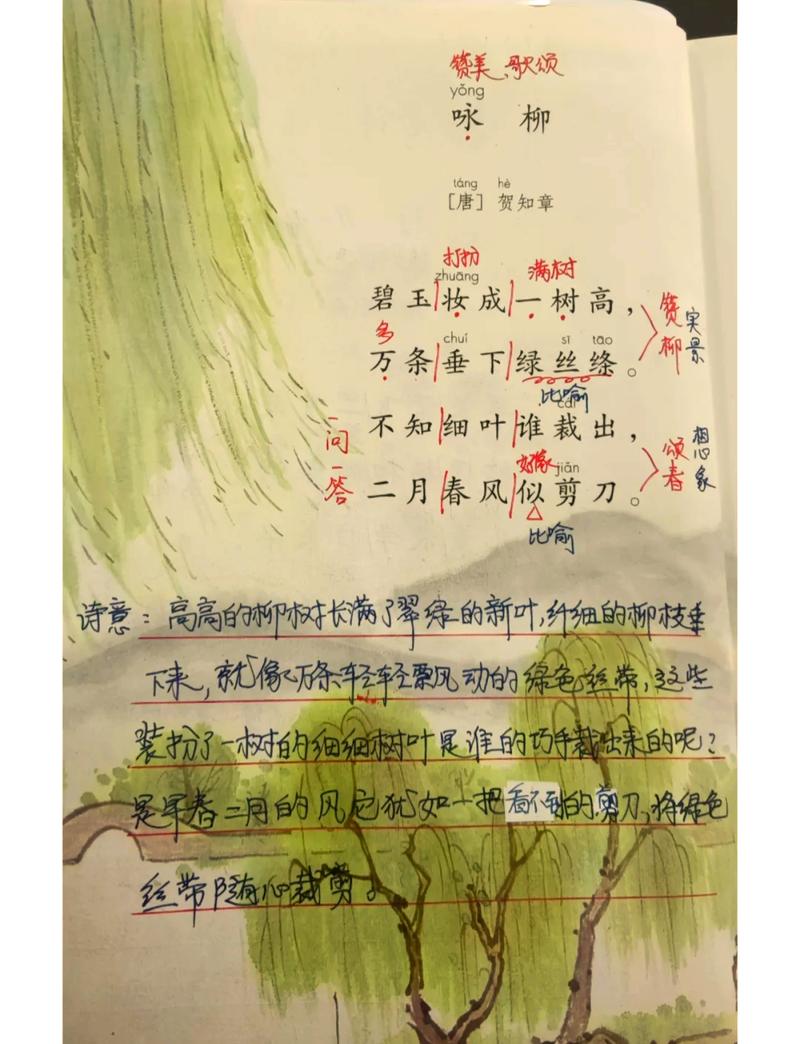 赞美、歌颂
yǒng
咏 柳
táng hè
[唐] 贺知章
打扮 满树
zhuāng
碧玉妆成一树高，
赞柳 实景
多 chuí sī tāo
万条垂下绿丝绦。
比喻
cái
不知细叶谁裁出，
一问一答
颂春 想象
好像 jiǎn
二月春风似剪刀。
比喻
诗意：高高的柳树长满了翠绿的新叶，纤细的柳枝垂
下来，就像万条轻轻飘动的绿色丝带，这些
装扮了一树的细细树叶是谁的巧手裁出来的呢？
是早春二月的风它犹如一把看不到的剪刀，将绿色
丝带随心裁剪。